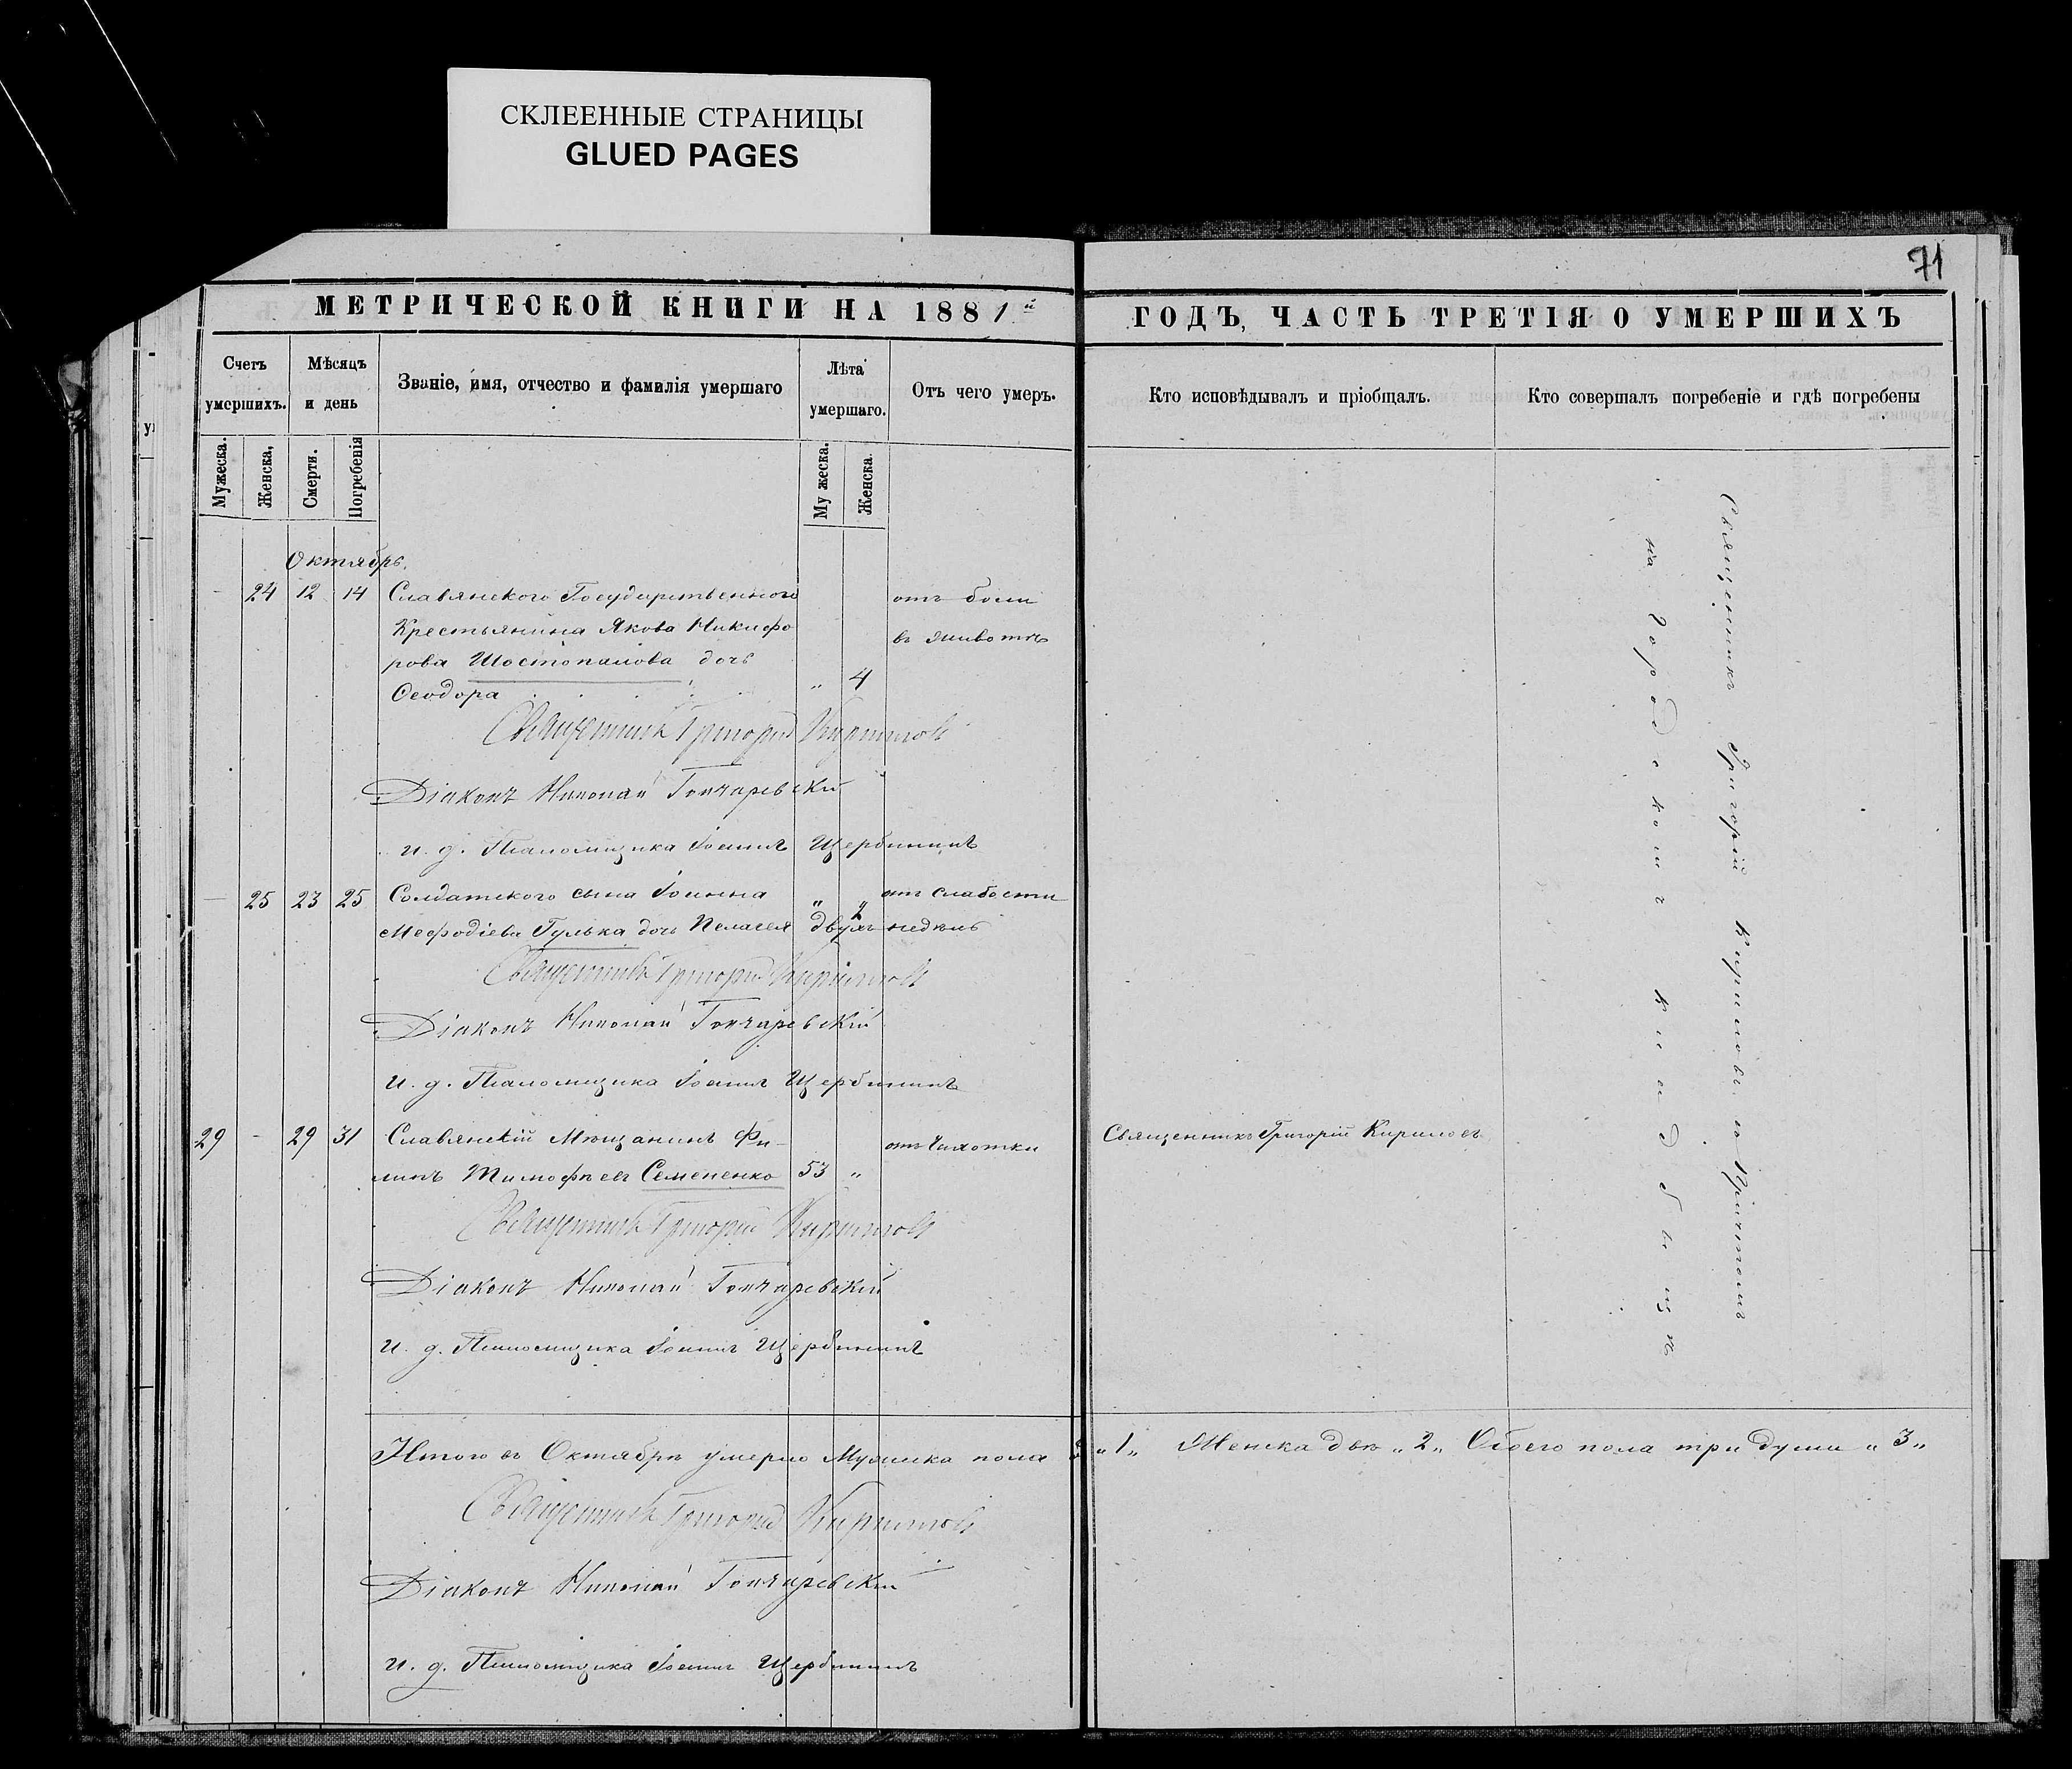 СКЛЕЕННЫЕ СТРАНИЦЫ
GLUED PAGES
71
МЕТРИЧЕСКОЙ КНИГИ НА 1881й
ГОДЪ, ЧАСТЬ ТРЕТІЯ О УМЕРШИХЪ
Счетъ умершихъ.
Мѣсяцъ и день
Званіе, имя, отчество и фамилія умершаго
Лѣта умершаго.
Отъ чего умеръ.
Кто исповѣдывалъ и пріобщалъ.
Кто совершалъ погребеніе и гдѣ погребены
Мужеска.
Женска,
Смерти.
Погребенія
Му жеска.
Женска.
Октябрь.
- 24 12 14 Славянского Государственного отъ боли
Крестьянина Якова Никифо въ животѣ
рова Шостопалова дочь
Ѳеодора „ 4
Священникъ Григорій Кириловъ
Діаконъ Николай Гончаревскій
и. д. Псаломщика Іоаннъ Щербининъ
- 25 23 25 Солдатского сына Іоанна „ „ отъ слабости
Меѳодіева Гулька дочь Пелагея двухъ 2 недѣль
Священникъ Григорій Кириловъ
Діаконъ Николай Гончаревскій
и. д. Псаломщика Іоаннъ Щербининъ
29 - 29 31 Славянскій Мѣщанинъ Фи- отъ Чахотки Священникъ Григорій Кириловъ
липъ Тимофѣевъ Семененко 53 „
Священникъ Григорій Кириловъ
Діаконъ Николай Гончаревскій
и. д. Псаломщика Іоаннъ Щербининъ
Священникъ Григорій Кириловъ съ Причтомъ
на городскомъ кладбищѣ
Итого въ Октябрѣ умерло Мужска пола „1„ Женска двѣ „2„ Обоего пола три души „3„
Священникъ Григорій Кириловъ
Діаконъ Николай Гончаревскій
и. д. Псаломщика Іоаннъ Щербининъ